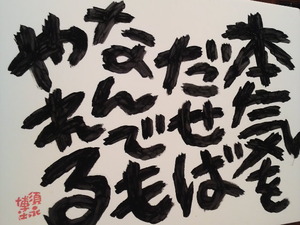 本気を
だせば
なんでも
やれる
須永博士